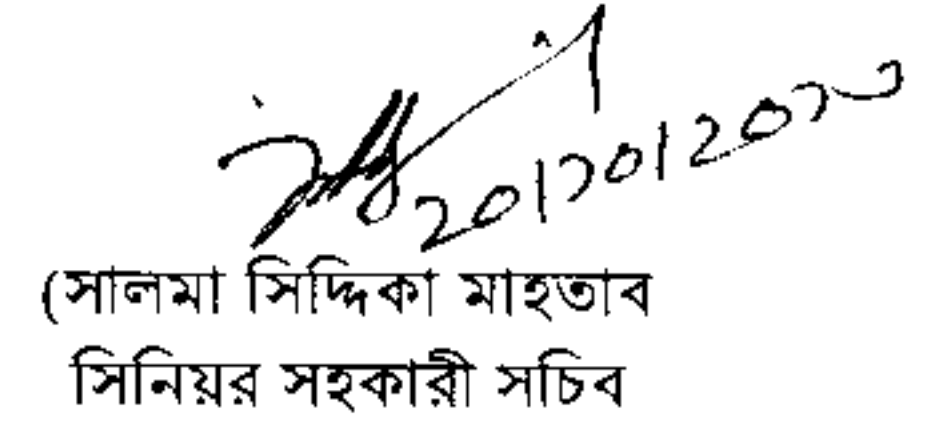 ২০|১০|২০১৩
(সালমা সিদ্দিকা মাহতাব
সিনিয়র সহকারী সচিব